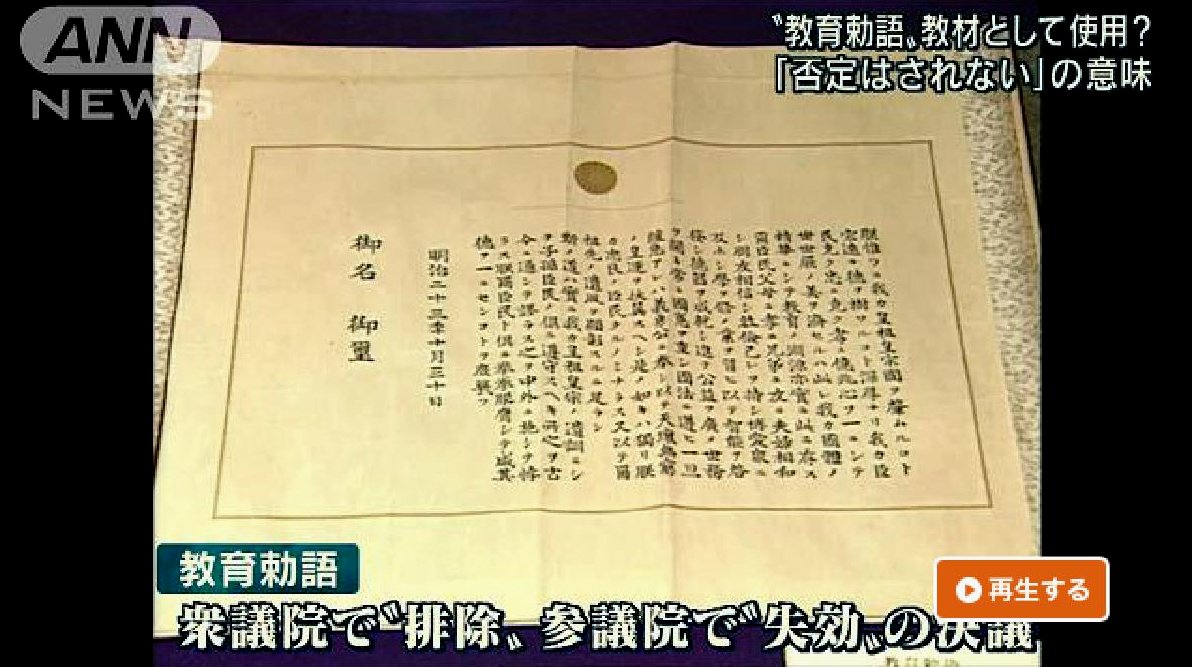 ANN
NEWS
〝教育勅語〟教材として使用？
「否定はされない」の意味
朕惟フニ我カ皇祖皇宗國ヲ肇ムルコト
宏遠ニ德ヲ樹ツルコト深厚ナリ我カ臣
民克ク忠ニ克ク孝ニ億兆心ヲ一ニシテ
世世厥ノ美ヲ濟セルハ此レ我カ國體ノ
精華ニシテ教育ノ淵源亦實ニ此ニ存ス
爾臣民父母ニ孝ニ兄弟ニ友ニ夫婦相和
シ朋友相信シ恭儉己レヲ持シ博愛衆ニ
及ホシ學ヲ修メ業ヲ習ヒ以テ智能ヲ啓
發シ德器ヲ成就シ進テ公益ヲ廣メ世務
ヲ開キ常ニ國憲ヲ重シ國法ニ遵ヒ一旦
緩急アレハ義勇公ニ奉シ以テ天壤無窮
ノ皇運ヲ扶翼スヘシ是ノ如キハ獨リ朕
カ忠良ノ臣民タルノミナラス又以テ爾
祖先ノ遺風ヲ顯彰スルニ足ラン
斯ノ道ハ實ニ我カ皇祖皇宗ノ遺訓ニシ
テ子孫臣民ノ俱ニ遵守スヘキ所之ヲ古
今ニ通シテ謬ラス之ヲ中外ニ施シテ悖
ラス朕爾臣民ト俱ニ拳拳服膺シテ咸其
德ヲ一ニセンコトヲ庶幾フ
明治二十三年十月三十日
御名 御璽
教育勅語
衆議院で〝排除〟参議院で〝失効〟の決議
再生する